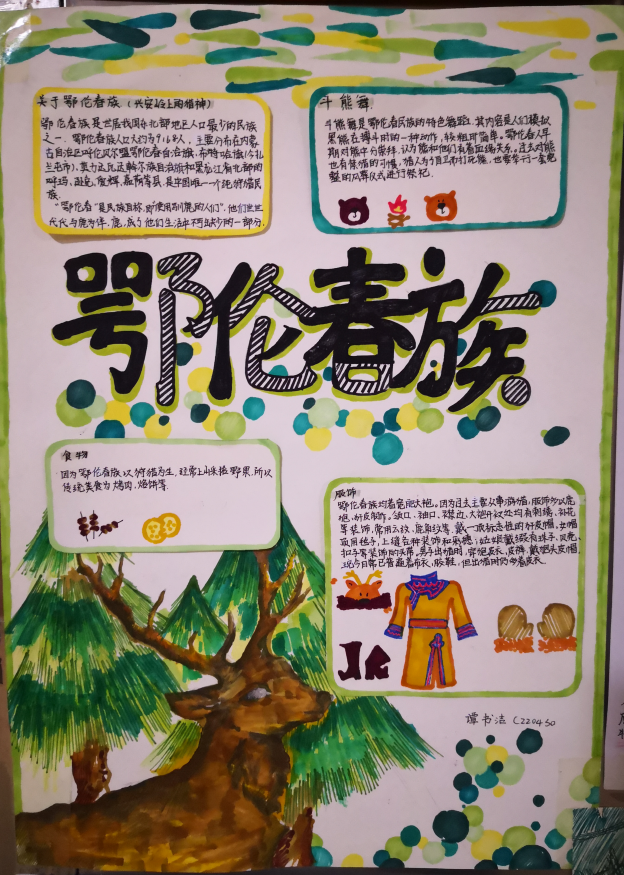 关于鄂伦春族（兴安岭上的猎神）
鄂伦春族是世居我国东北部地区人口最少的民族
之一，鄂伦春族人口大约为9168人，主要分布在内蒙
古自治区呼伦贝尔盟鄂伦春自治旗，布特哈旗(今扎
兰屯市)、莫力达瓦达斡尔族自治旗和黑龙江省北部的
呼玛、逊克、爱辉、嘉荫等县，是中国唯一个纯狩猎民
族。
"鄂伦春"是民族自称，即"使用驯鹿的人们"，他们世世
代代与鹿为伴，鹿，成了他们生活中不可缺少的一部分。
斗熊舞
斗熊舞是鄂伦春民族的特色舞蹈，其内容是人们模拟
黑熊在搏斗时的一种动作，较粗犷简单。鄂伦春人早
期对熊十分崇拜，认为熊和他们有着血缘关系。过去对熊
也有禁猎的习惯，猎人为了自卫而打死熊，也需举行一套完
整的风葬仪式进行祭祀。
鄂伦春族
食物
因为鄂伦春族以狩猎为生，经常上山采摘野果，所以
传统美食为烤肉，烙饼等.
服饰
鄂伦春族均着宽肥大袍。因为过去主要从事游猎，服饰多以鹿
狍、犴皮制作。领口、袖口、襟边、大袍开衩处均有刺绣、补花
等装饰，常用云纹、鹿角纹等，戴一顶标志性的犴皮帽，女帽
顶用毡子，上缝各种装饰和彩穗；妇女还戴缀有珠子、贝壳、
扣子等装饰的头带。男子出猎时，穿狍皮衣、皮裤，戴狍头皮帽，
现今日常已普遍着布衣、胶鞋，但出猎时仍多着皮衣
谭书洁 C220450